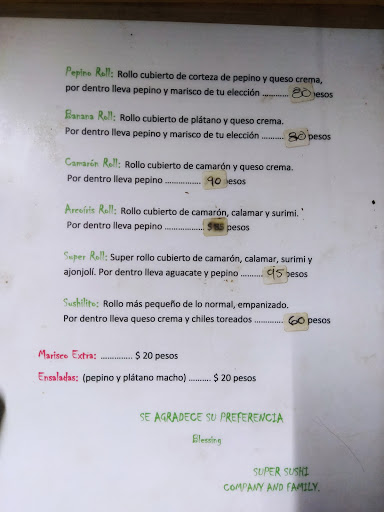 Pepino Roll: Rollo cubierto de corteza de pepino y queso crema,
por dentro lleva pepino y marisco de tu elección ............ 80 pesos
Banana Roll: Rollo cubierto de plátano y queso crema.
Por dentro lleva pepino y marisco de tu elección .......... 80 pesos
Camarón Roll: Rollo cubierto de camarón y queso crema.
Por dentro lleva pepino ................ 90 pesos
Arcoíris Roll: Rollo cubierto de camarón, calamar y surimi.
Por dentro lleva pepino .................. pesos
Super Roll: Super rollo cubierto de camarón, calamar, surimi y
ajonjolí. Por dentro lleva aguacate y pepino .......... 95 pesos
Sushilito: Rollo más pequeño de lo normal, empanizado.
Por dentro lleva queso crema y chiles toreados ............. 60 pesos
Marisco Extra: .............. $ 20 pesos
Ensaladas: (pepino y plátano macho) .......... $ 20 pesos
SE AGRADECE SU PREFERENCIA
Blessing
SUPER SUSHI
COMPANY AND FAMILY.